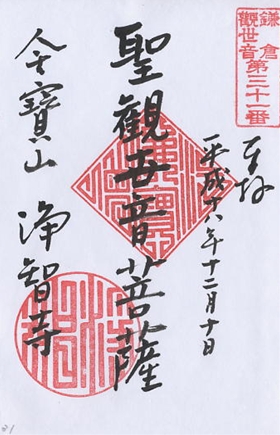 鎌倉
観世音第三十一番
奉拝
平成十八年十二月十日
聖観世音菩薩
金宝山
浄智寺
31